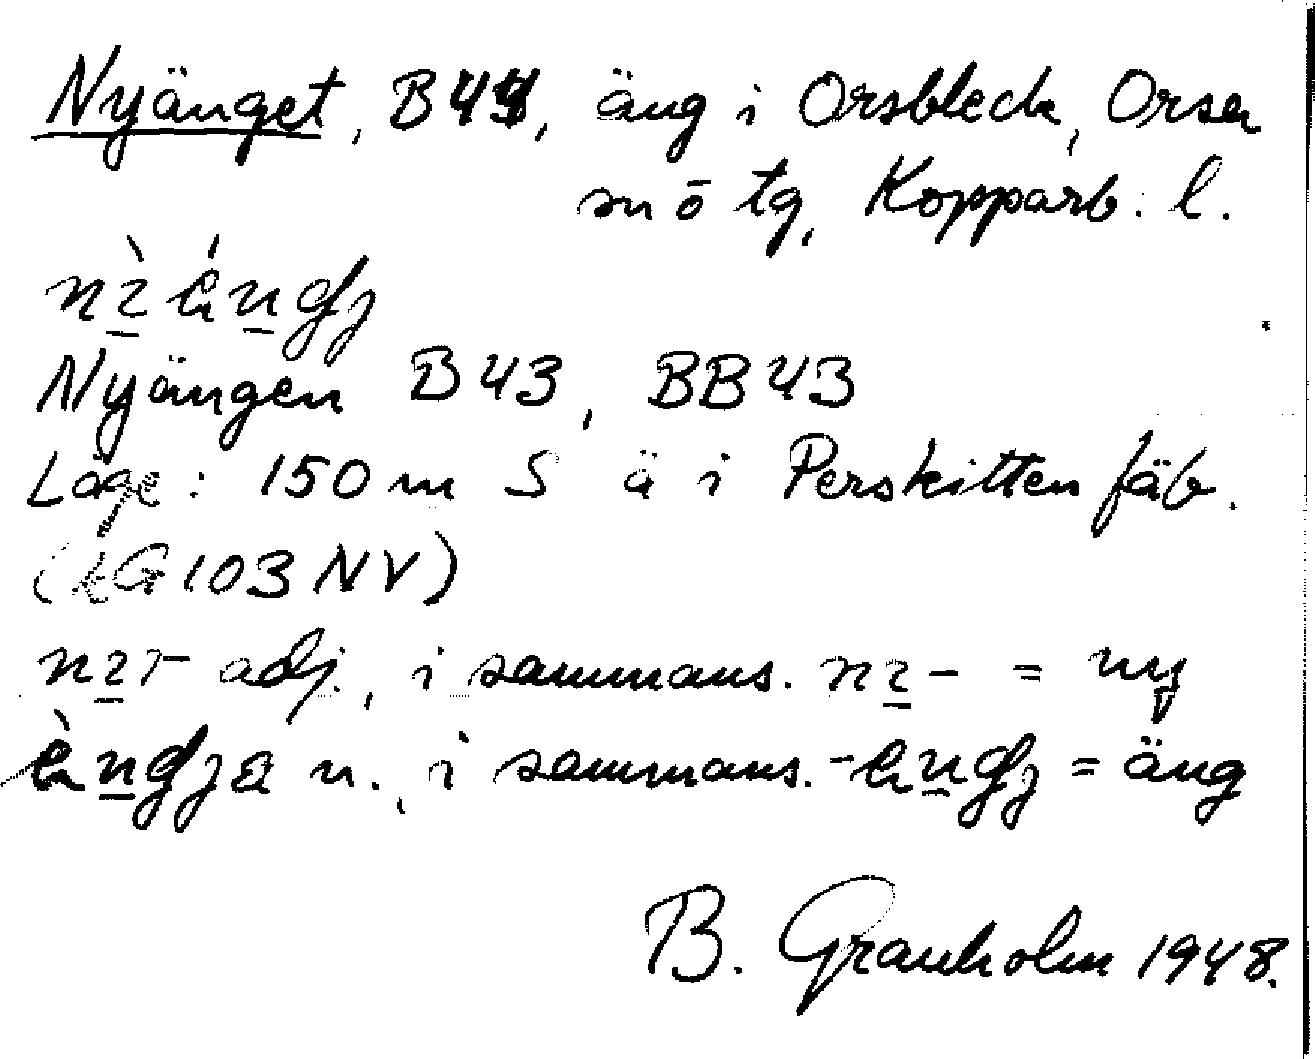 Nyänget, B44, äng i Orsbleck, Orsa
sn ö tg, Kopparb. l.
Nyängen B43, BB43
Läge: 150 m S ä i Perskitten fäb.
(LG 103 NV)
adj., i sammans. = ny
n., i sammans. = äng
B. Granholm 1948.